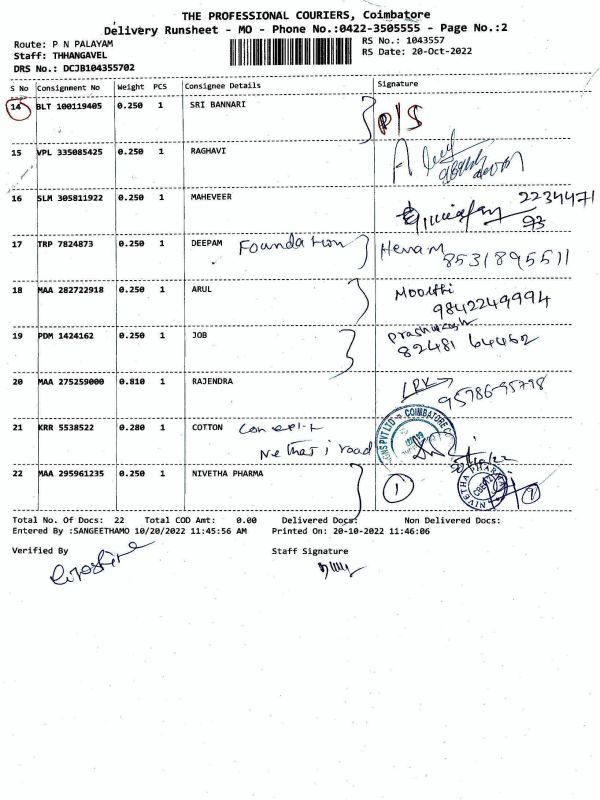 THE PROFESSIONAL COURIERS, Coimbatore
Delivery Runsheet - MO - Phone No.:0422-3505555 - Page No.:2
Route: P N PALAYAM
RS No.: 1043557
Staff: THHANGAVEL
RS Date: 20-Oct-2022
DRS No.: DCJB104355702
S No Consignment No Weight PCS Consignee Details Signature
14 BLT 100119405 0.250 1 SRI BANNARI P/S
15 VPL 335085425 0.250 1 RAGHAVI
16 SLM 305811922 0.250 1 MAHEVEER 2234471
93
17 TRP 7824873 0.250 1 DEEPAM Foundation Hema M
8531895511
18 MAA 282722918 0.250 1 ARUL Moorthi
9842249994
19 PDM 1424162 0.250 1 JOB
82481 64462
20 MAA 275259000 0.810 1 RAJENDRA
95786-95798
21 KRR 5538522 0.280 1 COTTON Concept
road
22 MAA 295961235 0.250 1 NIVETHA PHARMA 1
NIVETHA PHARMA
Total No. Of Docs: 22 Total COD Amt: 0.00 Delivered Docs: Non Delivered Docs:
Entered By :SANGEETHAMO 10/20/2022 11:45:56 AM Printed On: 20-10-2022 11:46:06
Verified By Staff Signature